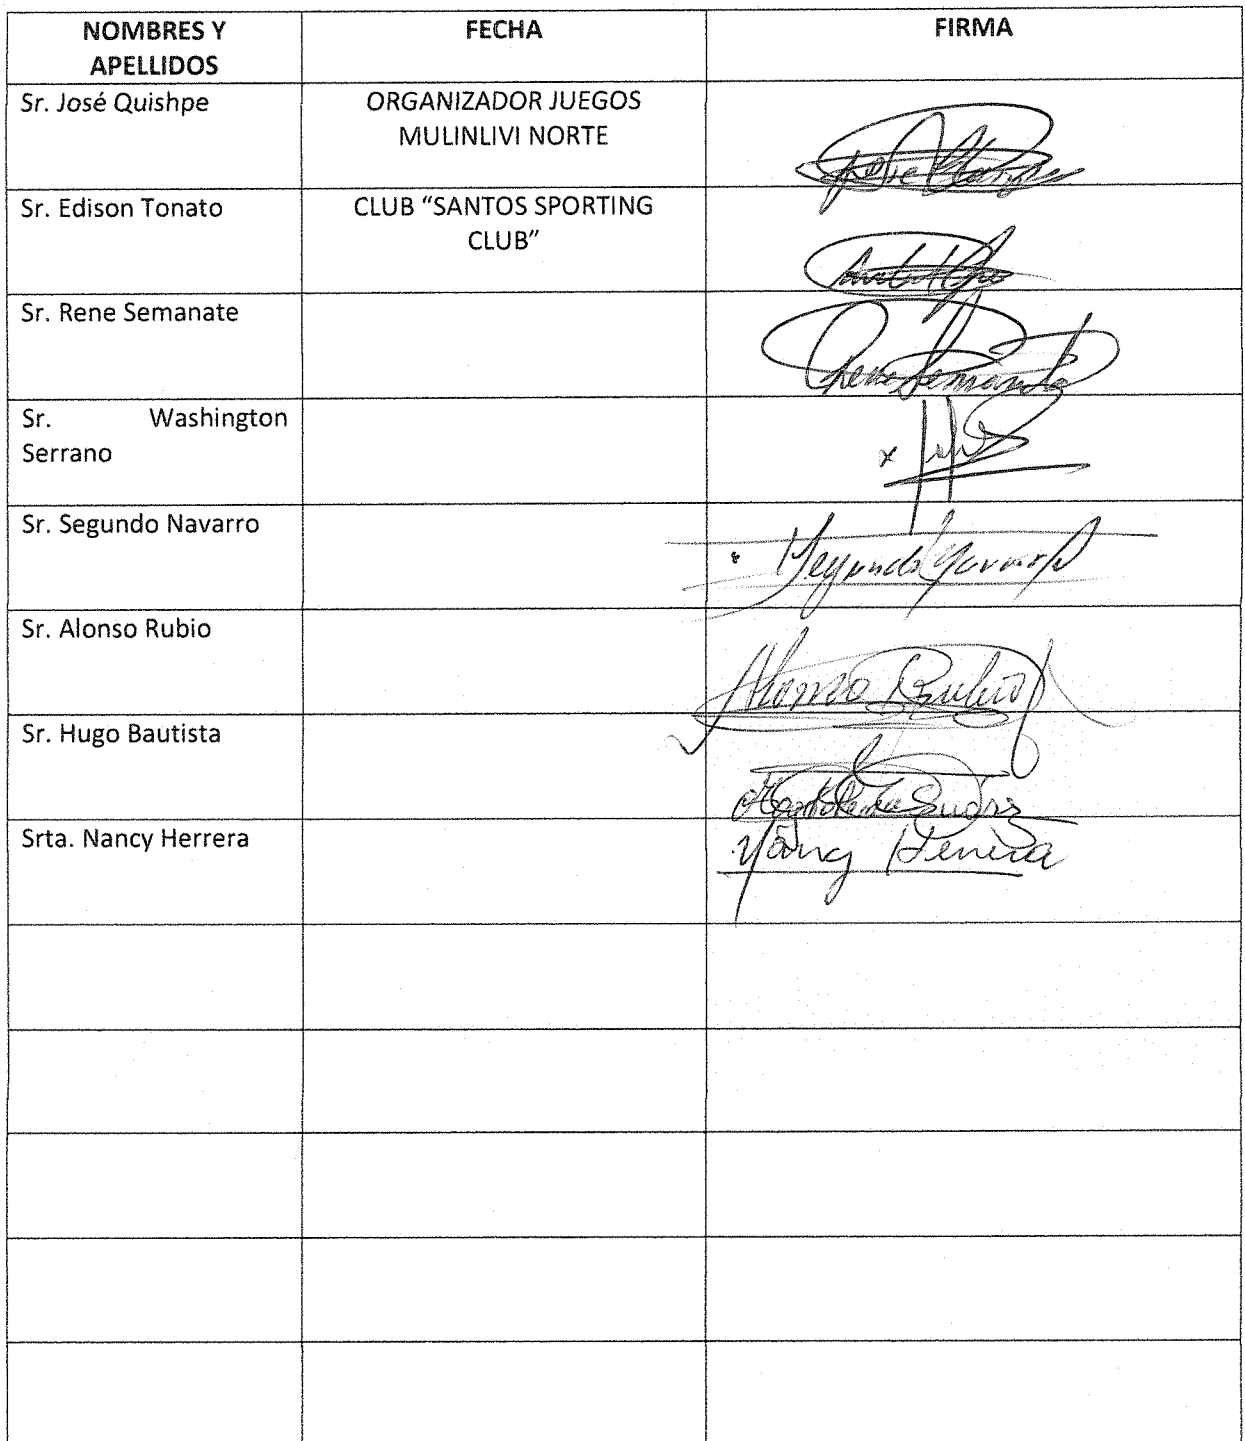 NOMBRES Y
APELLIDOS
FECHA
FIRMA
Sr. José Quishpe
ORGANIZADOR JUEGOS
MULINLIVI NORTE
Sr. Edison Tonato
CLUB “SANTOS SPORTING
CLUB”
Sr. Rene Semanate
Rene Semanate
Sr. Washington
Serrano
x
Sr. Segundo Navarro
Segundo Navarro
Sr. Alonso Rubio
Alonso Rubio
Sr. Hugo Bautista
Srta. Nancy Herrera
Nancy Herrera